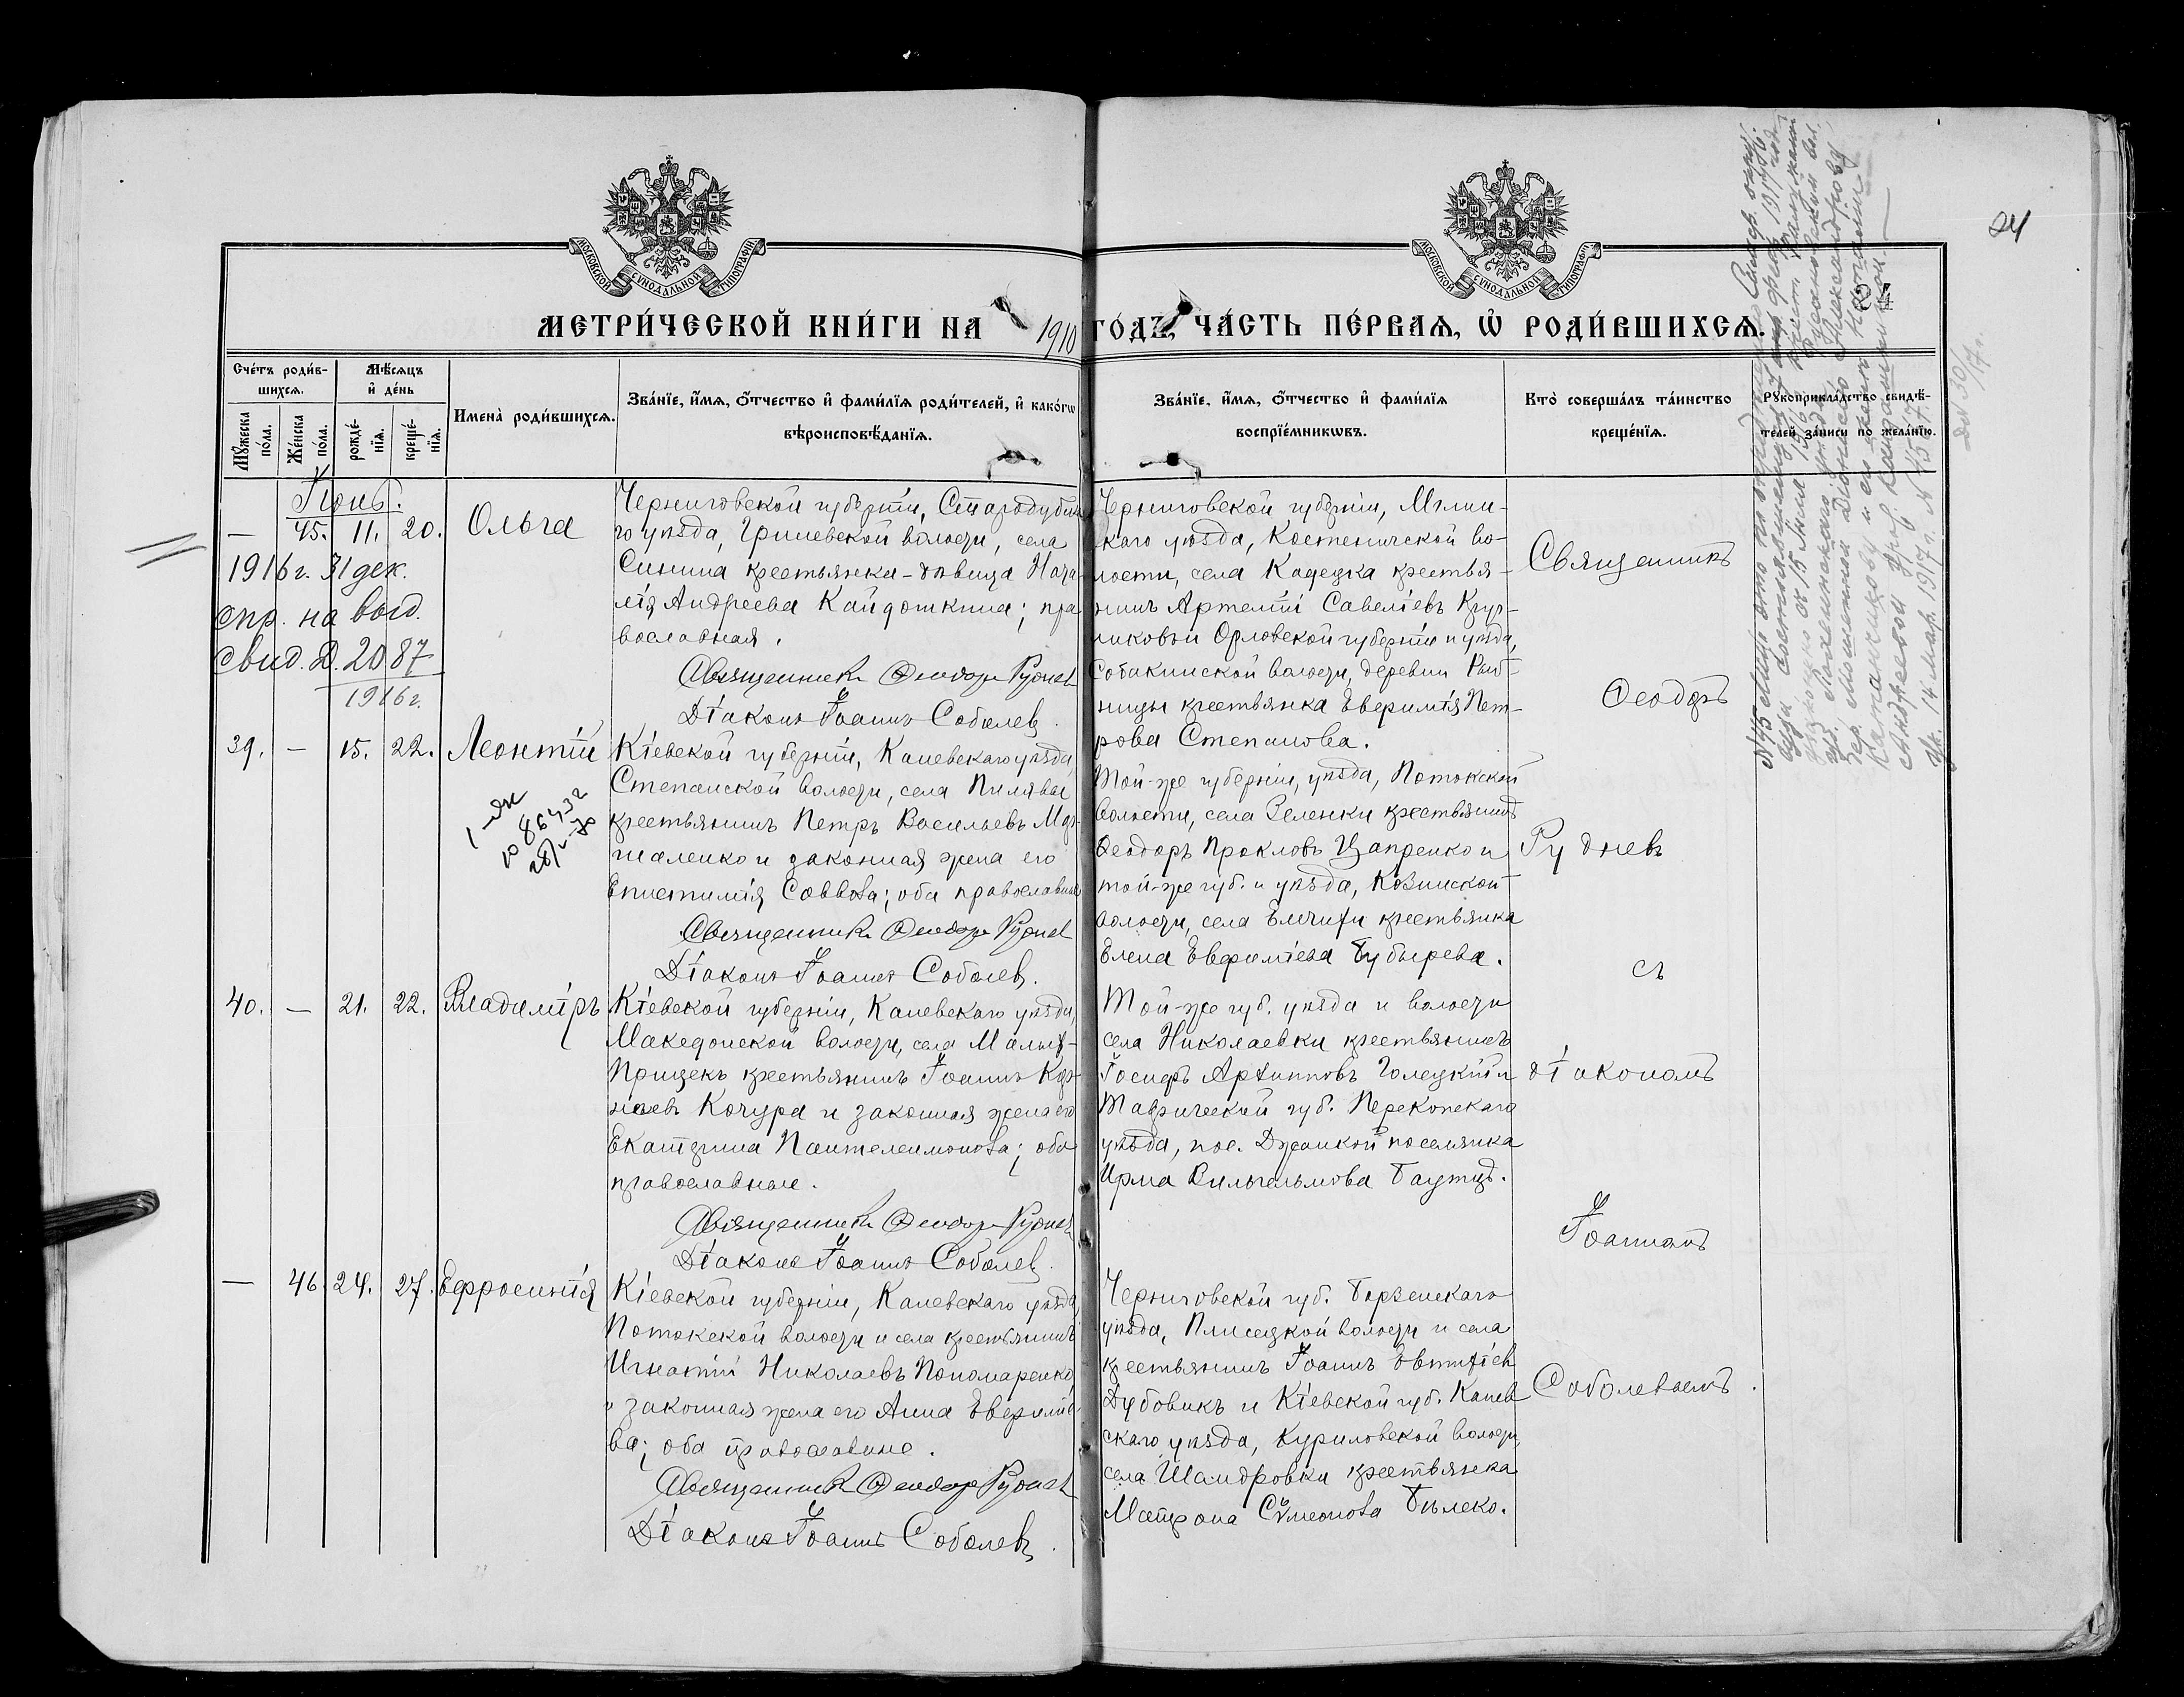 МОСКОВСКОЙ СѴНОДАЛЬНОЙ ТИПОГРАФІИ
МОСКОВСКОЙ СѴНОДАЛЬНОЙ ТИПОГРАФІИ
24
24
МЕТРИ́ЧЕСКОЙ КНИ́ГИ НА 1910 ГО́ДЪ, ЧА́СТЬ ПЕ́РВАѦ, Ѡ҆ РОДИ́ВШИХСѦ.
Сче́тъ роди́в-
шихсѧ.
Мꙋ́жеска по́ла.
Же́нска по́ла.
Мѣ́сѧцъ
и҆ де́нь
рожде́-
нїѧ.
креще́-
нїѧ.
Имена̀ роди́вшихсѧ.
Зва́нїе, и҆́мѧ, ѻ҆́тчество и҆ фами́лїѧ роди́телей, и҆ како́гѡ
вѣроисповѣ́данїѧ.
Зва́нїе, и҆́мѧ, ѻ҆́тчество и҆ фами́лїѧ
воспрїе́мникѡвъ.
Кто̀ соверша́лъ та́инство
креще́нїѧ.
Рꙋкоприкла́дство свидѣ́-
телей за́писи по жела́нїю.
Іюнь.
— 45. 11. 20. Ольга
1916 г. 31 дек.
спр. на выд.
свид. Д. 2087
1916 г.
Черниговской губерніи, Стародубска-
го уѣзда, Гриневской волости, села
Синина крестьянка-дѣвица Ната-
лія Андреева Кайдошкина; пра-
вославная.
Священникъ Ѳеодоръ Рудневъ
Діаконъ Іоаннъ Соболевъ.
Черниговской губерніи, Мглин-
скаго уѣзда, Костеничской во-
лости, села Кадецка крестья-
нинъ Артемій Савеліевъ Круг-
ликовъ и Орловской губерніи и уѣзда,
Собакинской волости, деревни Рыб-
ницы крестьянка Евфимія Пет-
рова Степанова.
39. — 15. 22. Леонтій
1-як
Кіевской губерніи, Каневскаго уѣзда
Степанской волости, села Пилявы
крестьянинъ Петръ Васильевъ Мар-
чаленко и законная жена его
Епистимія Саввова; оба православные
Священникъ Ѳеодоръ Рудневъ
Діаконъ Іоаннъ Соболевъ.
Той-же губерніи, уѣзда, Потокской
волости, села Зеленки крестьянинъ
Ѳеодоръ Прокловъ Цапренко и
той-же губ. и уѣзда, Козинской
волости, села Емчихи крестьянка
Елена Евфиміева Бубырева.
40. — 21. 22. Владиміръ
Кіевской губерніи, Каневскаго уѣзда,
Македонской волости, села Малых-
Прицекъ крестьянинъ Іоаннъ Кор-
ніевъ Кочура и законная жена его
Екатерина Пантелеимонова; оба
православные.
Священникъ Ѳеодоръ Рудневъ
Діаконъ Іоаннъ Соболевъ.
Той-же губ. уѣзда и волости
села Николаевки крестьянинъ
Іосифъ Архипповъ Голецкій и
Таврической губ. Перекопскаго
уѣзда, пос. Джанкой поселянка
Ирма Вильгельмова Баутцъ.
— 46. 24. 27. Ефросинія
Кіевской губерніи, Каневскаго уѣзда,
Потокской волости и села крестьянинъ
Игнатій Николаевъ Пономаренко
и законная жена его Анна Евфиміе-
ва; оба православные.
Священникъ Ѳеодоръ Рудневъ
Діаконъ Іоаннъ Соболевъ.
Черниговской губ. Борзенскаго
уѣзда, Плисецкой волости и села
крестьянинъ Іоаннъ Евтихіевъ
Дубовикъ и Кіевской губ. Канев
скаго уѣзда, Куриловской волости,
села Шандровки крестьянка
Матрона Сѵмеонова Бѣлеко.
Священникъ
Ѳеодоръ
Рудневъ
съ
діакономъ
Іоанномъ
Соболевымъ.